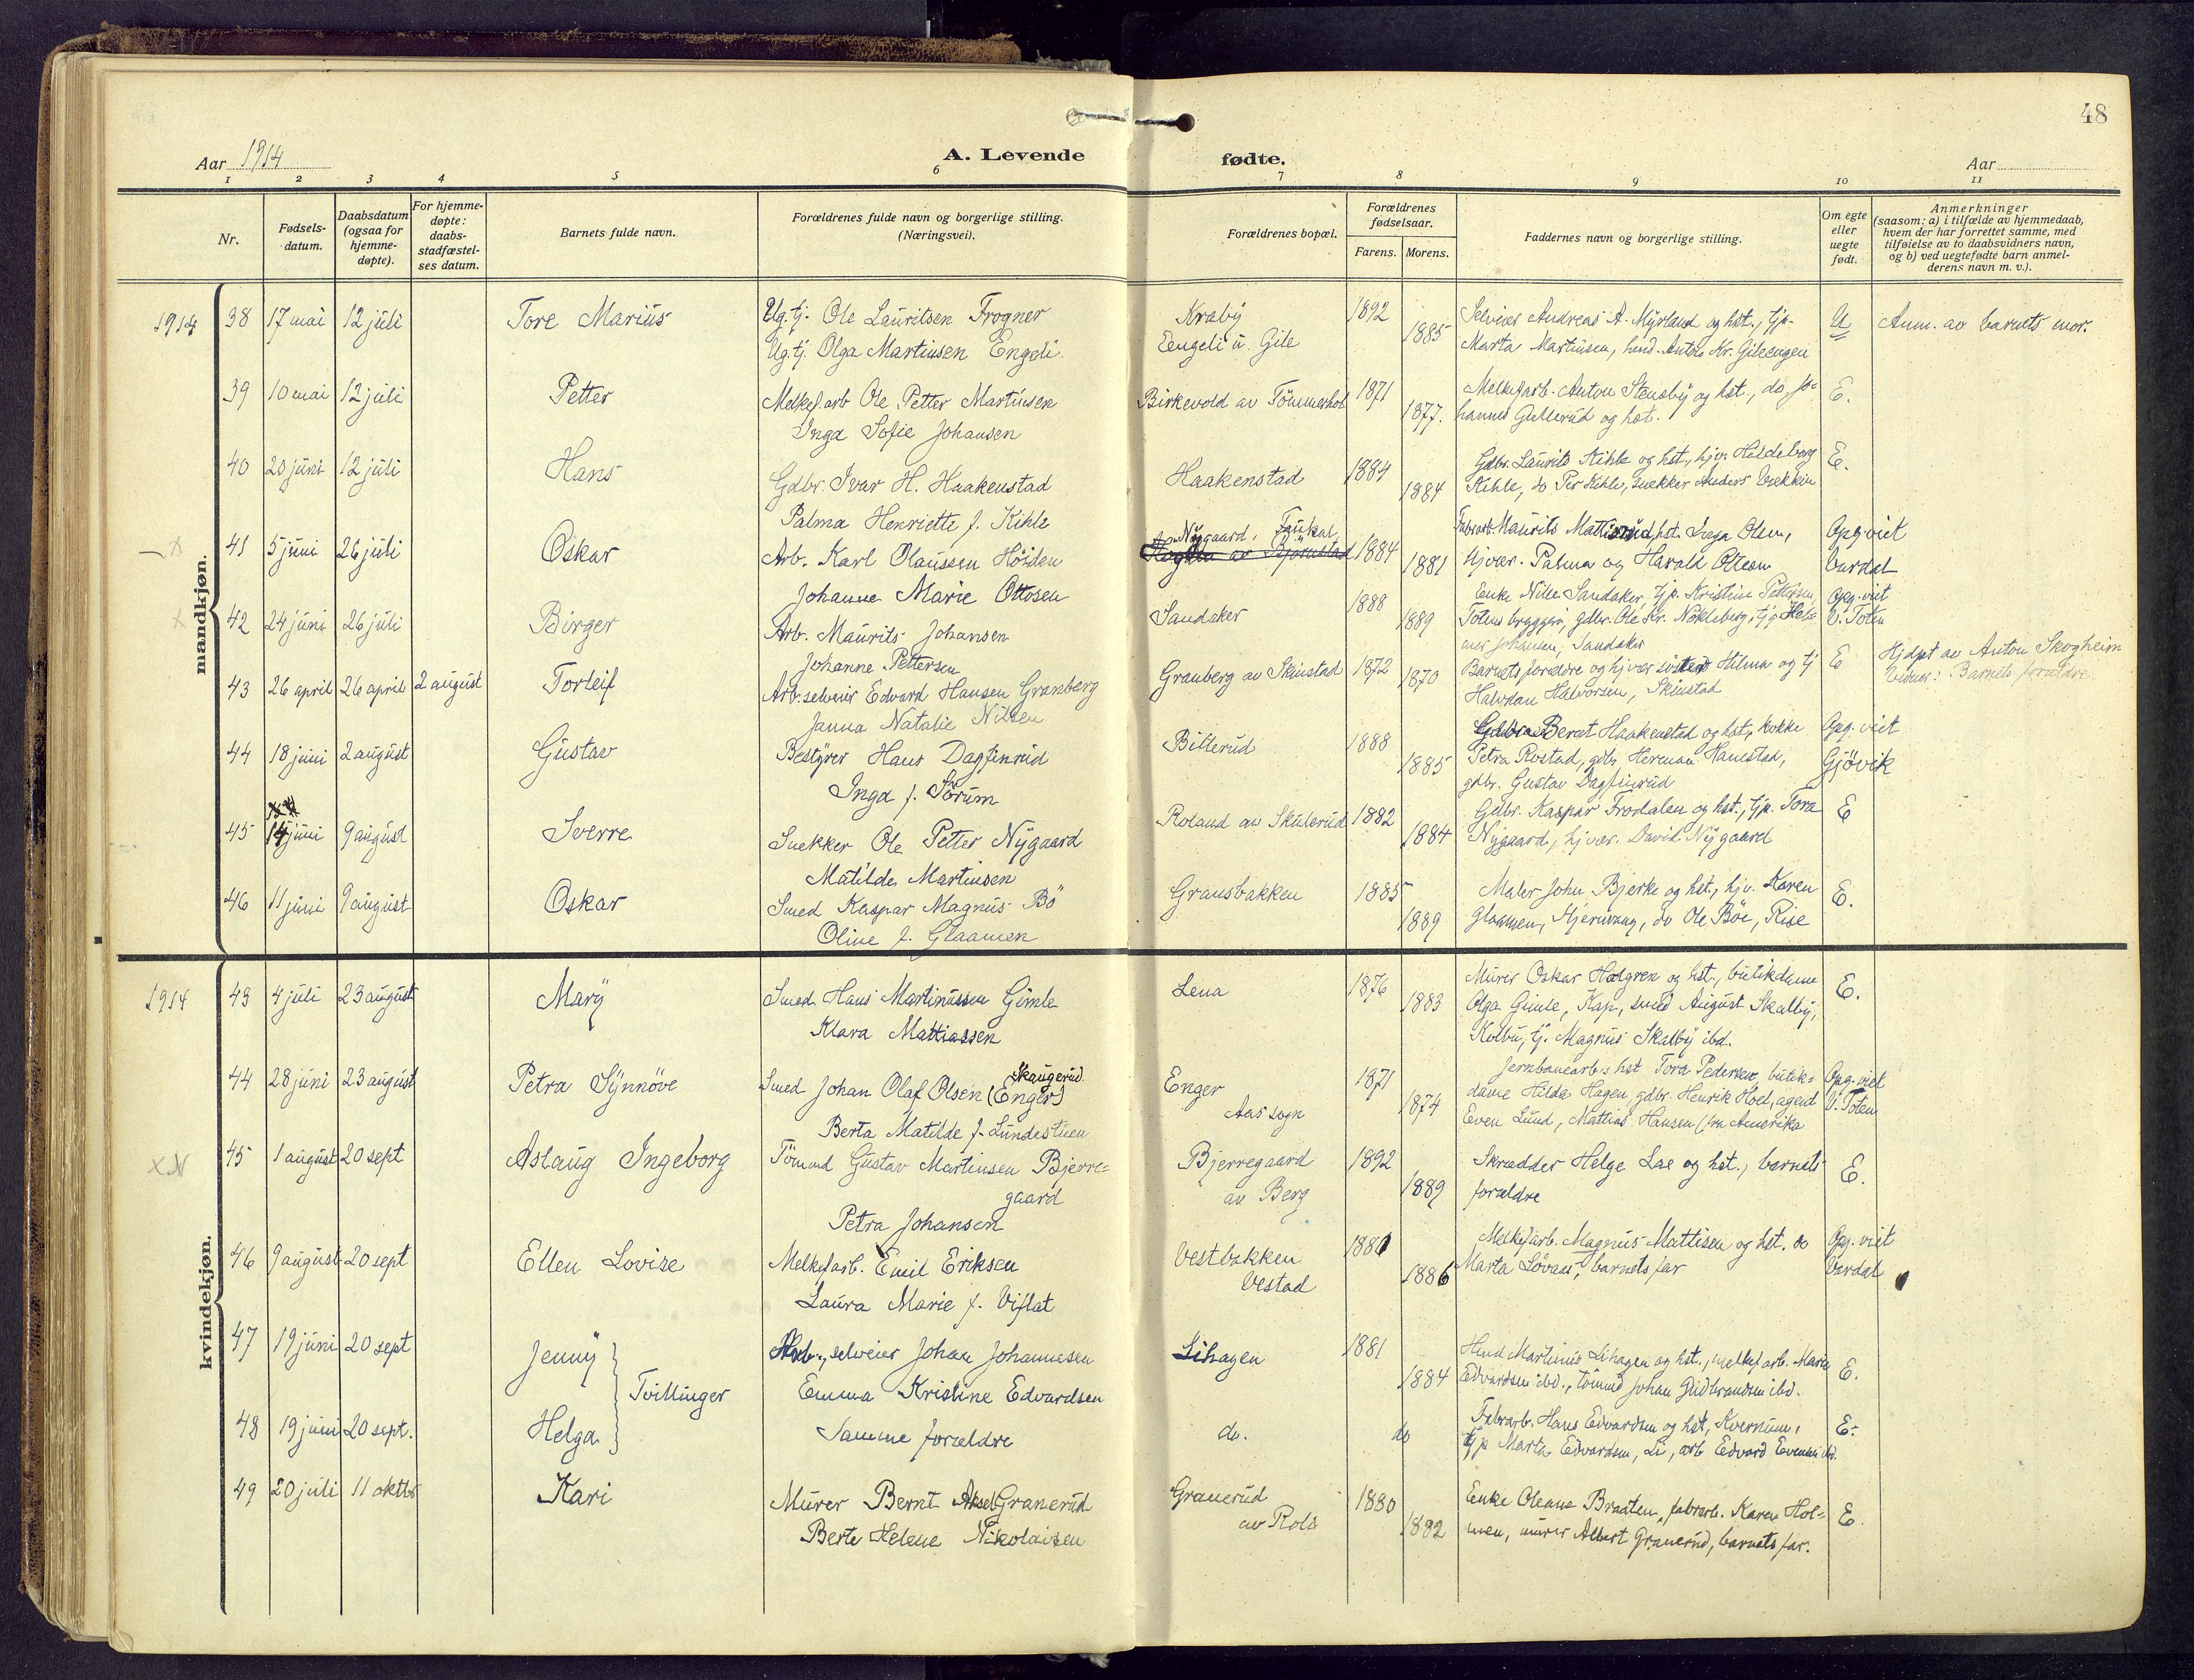 48
Aar 1914
A. Levende fødte.
Aar
1 2 3 4 5 6 7 8 9 10 11
Nr.
Fødsels-
datum.
Daabsdatum
(ogsaa for
hjemme-
døpte).
For hjemme-
døpte:
daabs-
stadfæstel-
ses datum.
Barnets fulde navn.
Forældrenes fulde navn og borgerlige stilling.
(Næringsvei).
Forældrenes bopæl.
Forældrenes
fødselsaar.
Farens. Morens.
Faddernes navn og borgerlige stilling.
Om egte
eller
uegte
født.
Anmerkninger
(saasom: a) i tilfælde av hjemmedaab,
hvem der har forrettet samme, med
tilføielse av to daabsvidners navn,
og b) ved uegtefødte barn anmel-
derens navn m. v.).
mandkjøn.
1914 38 17 mai 12 juli Tore Marius Ug. tj. Ole Lauritsen Frogner Kraby 1892 Selveier Andreas A. Myrland og hst., tjp. U Anm. av barnets mor.
Ug. tj. Olga Martinsen Engeli Eengeli u. Gile 1885 Marta Martinsen, hmd. Anton Kr. Gileengen
39 10 mai 12 juli Petter Melkef.arb Ole Petter Martinsen Birkevold av Tömmerhol 1871 Melkefarb. Anton Stensby og hst., do Jo- E.
Inga Sofie Johansen 1877. hannes Gullerud og hst.
40 20 juni 12 juli Hans Gdbr. Ivar H. Haakenstad Haakenstad 1884 Gdbr. Laurits Kihle og hst., hjv. Hildeborg E.
Palma Henriette f. Kihle 1884 Kihle, do Per Kihle, snekker Anders
41 5 juni 26 juli Oskar Arb. Karl Olaussen Höiden Nygaard, 1884 Fabrarb. Maurits hst. Inga Olsen, Opg. viet
Johanne Marie Ottosen 1881 Hjvær. Palma og Harald Olsen Vardal
42 24 juni 26 juli Birger Arb. Maurits Johansen Sandaker 1888 Enke Nille Sandaker, tjp. Kristine Pettersen, Opg. viet
Johanne Pettersen 1889 Totens bryggeri, gdbr. Ole Kr. Nökleberg, tjg V. Toten
Johansen, Sandaker
43 26 april 26 april 2 august Torleif Arb. selveier Edvard Hansen Granberg Granberg av Skinstad 1872 Barnets forældre og hjvær. söster Hilma og tj E Hjdpt av Anton Skogheim
Janna Natalie Nilsen 1870 Halvdan Halvorsen, Skinstad Vidner: Barnets forældre
44 18 juni 2 august Gustav Bestyrer Hans Dagfinrud Billerud 1888 Bernt Haakenstad og hst., kokke Opg. viet
Inga f. Sörum 1885 Petra Rostad, gdbr. Herman Hanestad, Gjövik
gdbr. Gustav Dagfinrud
45 14 juni 9 august Sverre Snekker Ole Petter Nygaard Roland av Skulerud 1882 Gdbr. Kaspar Frodalen og hst., tjp. Tora E
Matilde Martinsen 1884 Nygaard, hjvær. David Nygaard
46 11 juni 9 august Oskar Smed Kaspar Magnus Bö Gransbakken 1885 Maler John Bjerke og hst., hjv. Karen E.
Oline f. Glaamen 1889 Glaamen, Hjernvang, do Ole Böe, Rise
kvindekjøn.
1914 43 4 juli 23 august Mary Smed Hans Martinussen Gimle Lena 1876 Murer Oskar Holgren og hst., butikdame E.
Klara Mattiassen 1883 Olga Gimle, Kap, smed August Skalby,
Kolbu, tj. Magnus Skalby ibd.
44 28 juni 23 august Petra Synnöve Smed Johan Olaf Olsen (Enger) Skaugerud Enger 1871 Jernbanearb.s hst Tora Pedersen, butik- Opg. viet
Berta Matilde f. Lundestuen Aas sogn 1874 dame Hilda Hagen, gdbr. Henrik Hoel, agent V. Toten
Even Lund, Mattias Hansen (fra Amerika
45 1 august 20 sept Aslaug Ingeborg Tömmd Gustav Martinsen Bjerre- Bjerregaard 1892 Skrædder Helge Lae og hst., barnets E.
gaard av Berg 1889 forældre
Petra Johansen
46 9 august 20 sept Ellen Lovise Melkefarb. Emil Eriksen Vestbakken 1881 Melkefarb. Magnus Mattisen og hst. do Opg. viet
Laura Marie f. Viflat Vestad 1886 Marta Lövaas, barnets far Vardal
47 19 juni 20 sept Jenny Arb., selveier Johan Johannesen Lihagen 1881 Hmd Martinus Lihagen og hst., melkefarb. Marie E.
Tvillinger Emma Kristine Edvardsen 1884 Edvardsen ibd., tömmd Johan Gudbrandsen ibd.
48 19 juni 20 sept. Helga Samme forældre do. do Fabrarb. Hans Edvardsen og hst, Kvernum, E.
tjp Marta Edvardsen, Li, arb Edvard Evensen ibd.
49 20 juli 11 oktbr Kari Murer Bernt Aksel Granerud Granerud 1880 Enke Oleane Braaten, fabrarb. Karen Hol- E.
Berte Helene Nikolaisen av Rols 1882 men, murer Albert Granerud, barnets far.